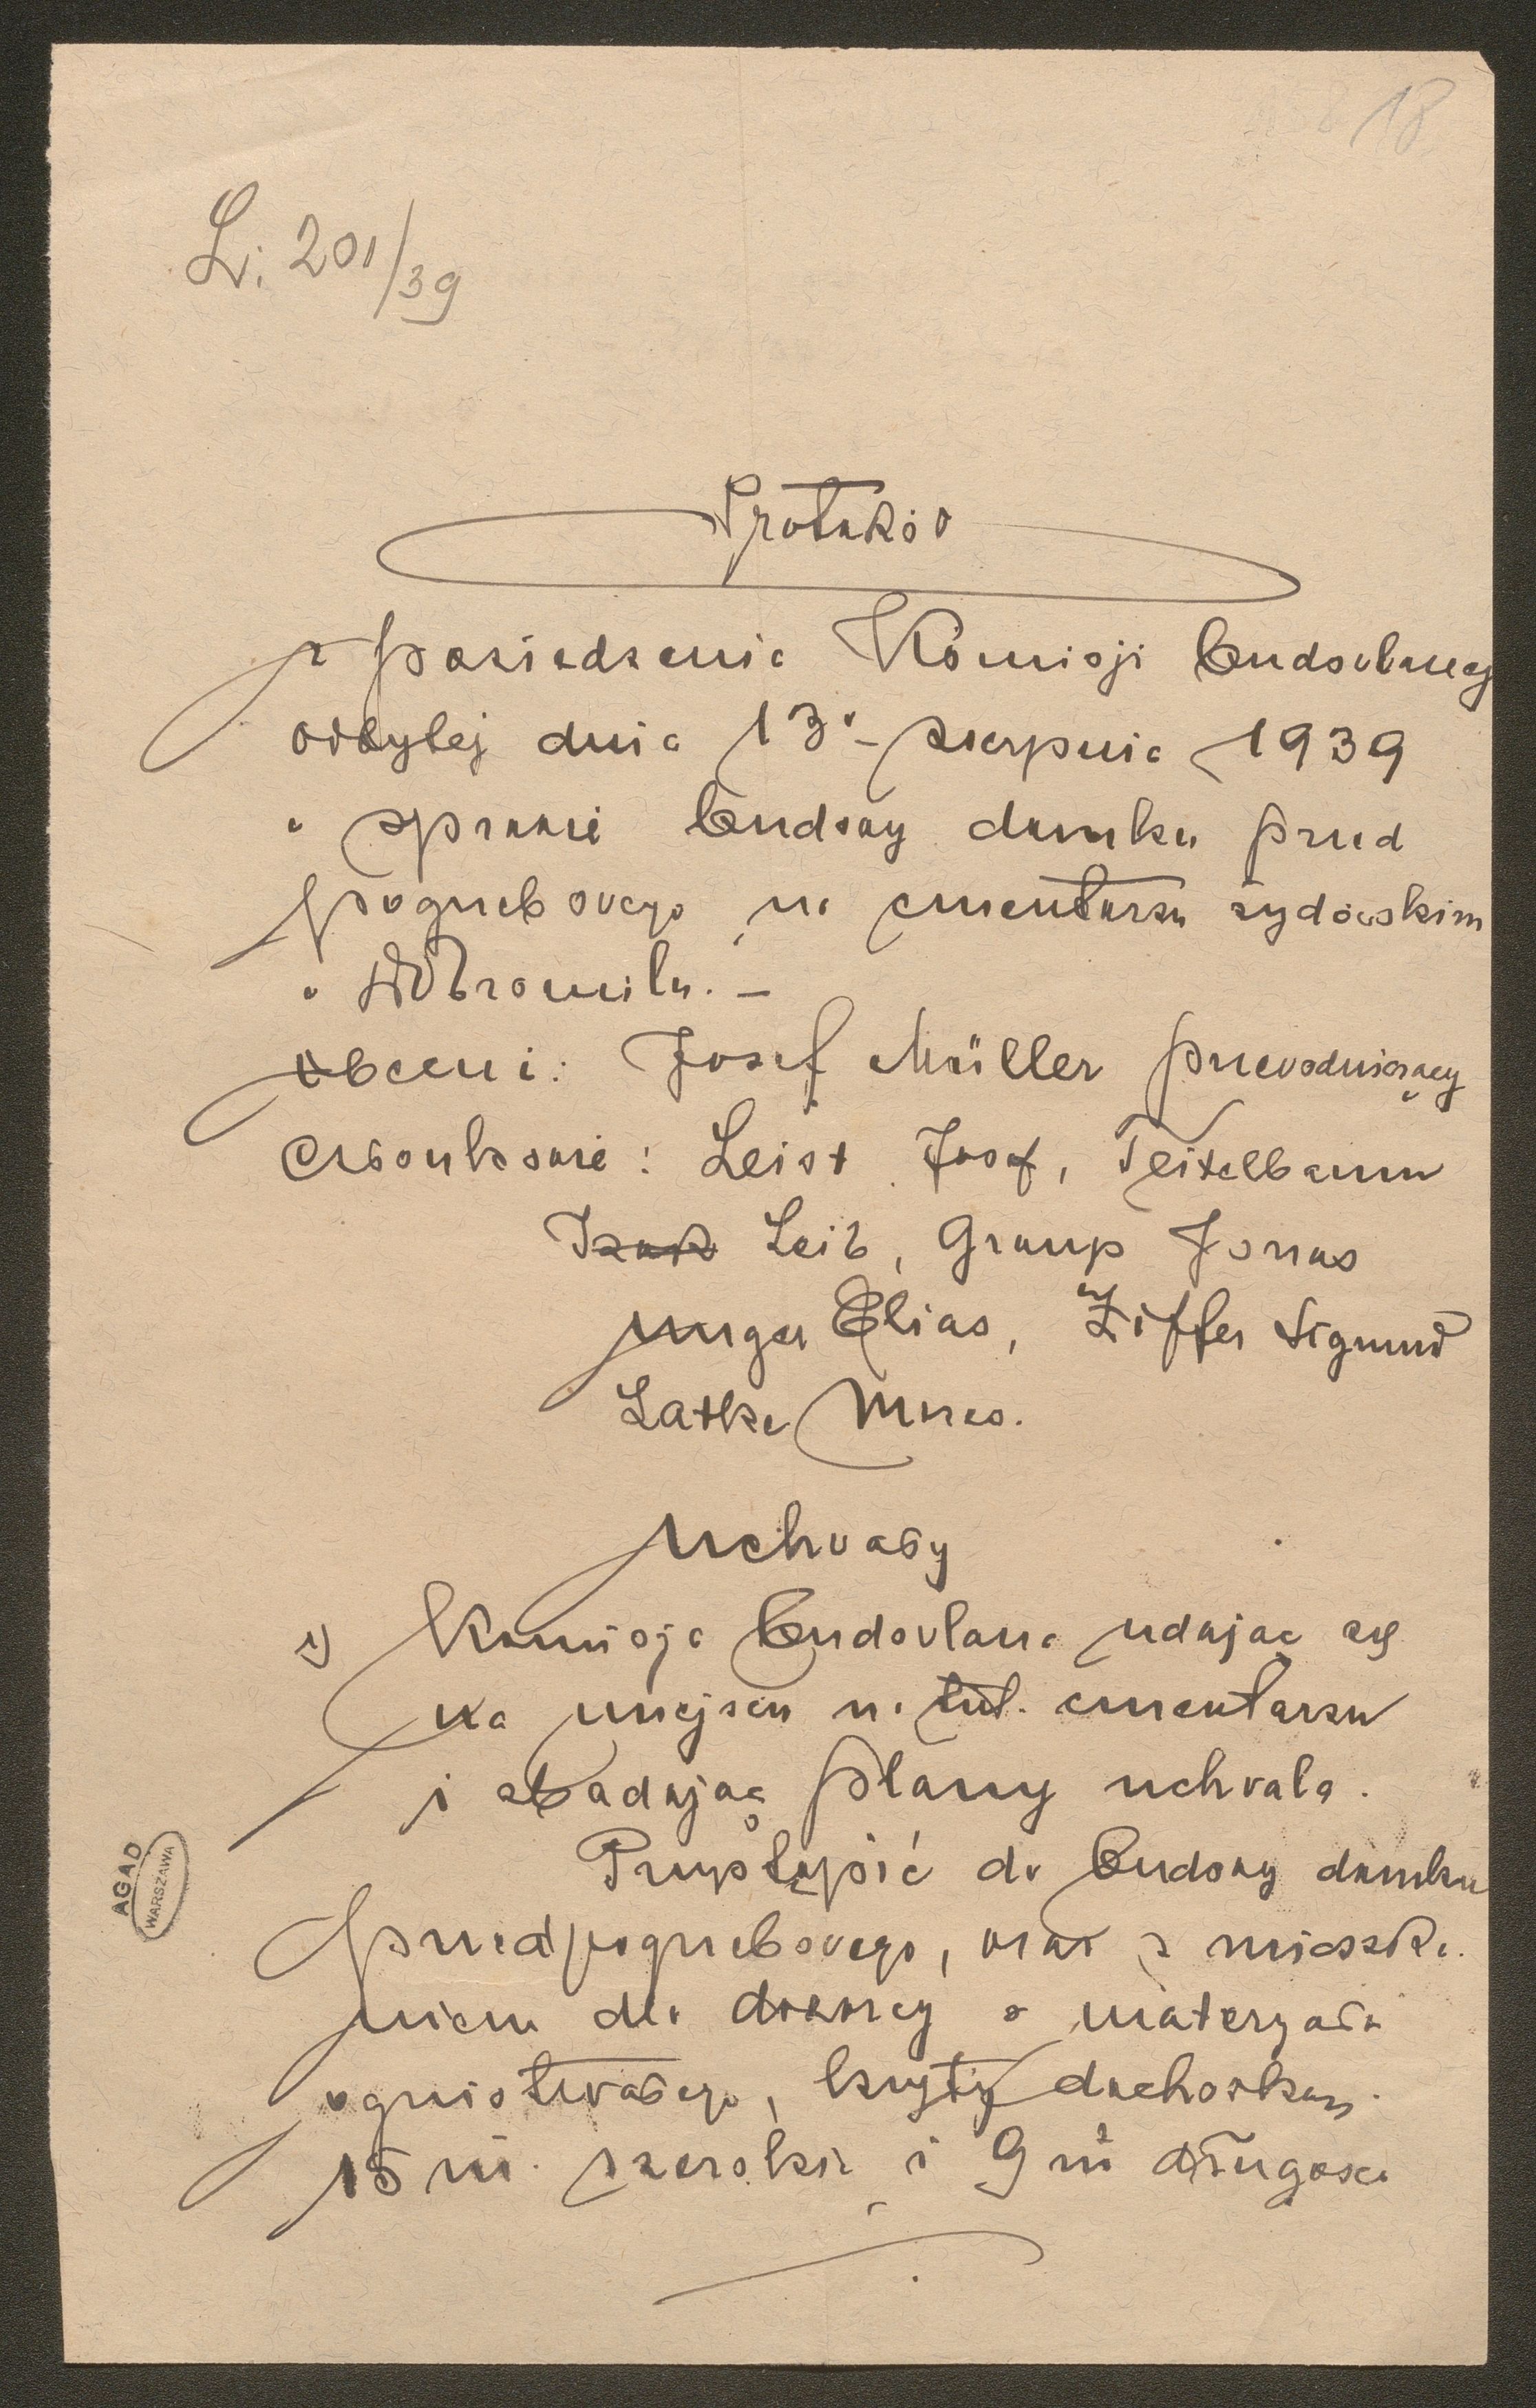 18
L: 201/39
Protokół
z posiedzenia Komisji budowlanej
odbytej dnia 13. sierpnia 1939
w sprawie budowy domku przed
pogrzebowego na cmentarzu żydowskim
w Dobromilu. –
Obecni: Josef Müller przewodniczący
Członkowie: Leist Josef, Teitelbaum
Izak Leib, Graup Jonas
Unger Elias, Ziffer Sigmund
Latke
Uchwały
1) Komisja budowlana udając się
na miejscu na tut. cmentarzu
i zbadając plany uchwala.
Przystąpić do budowy domku
przedpogrzebowego, oraz z mieszka
niem dla dozorcy z materyału
ogniotrwałego, kryty dachówkam
15 m. szeroki i 9 m długości
AGAD
WARSZAWA